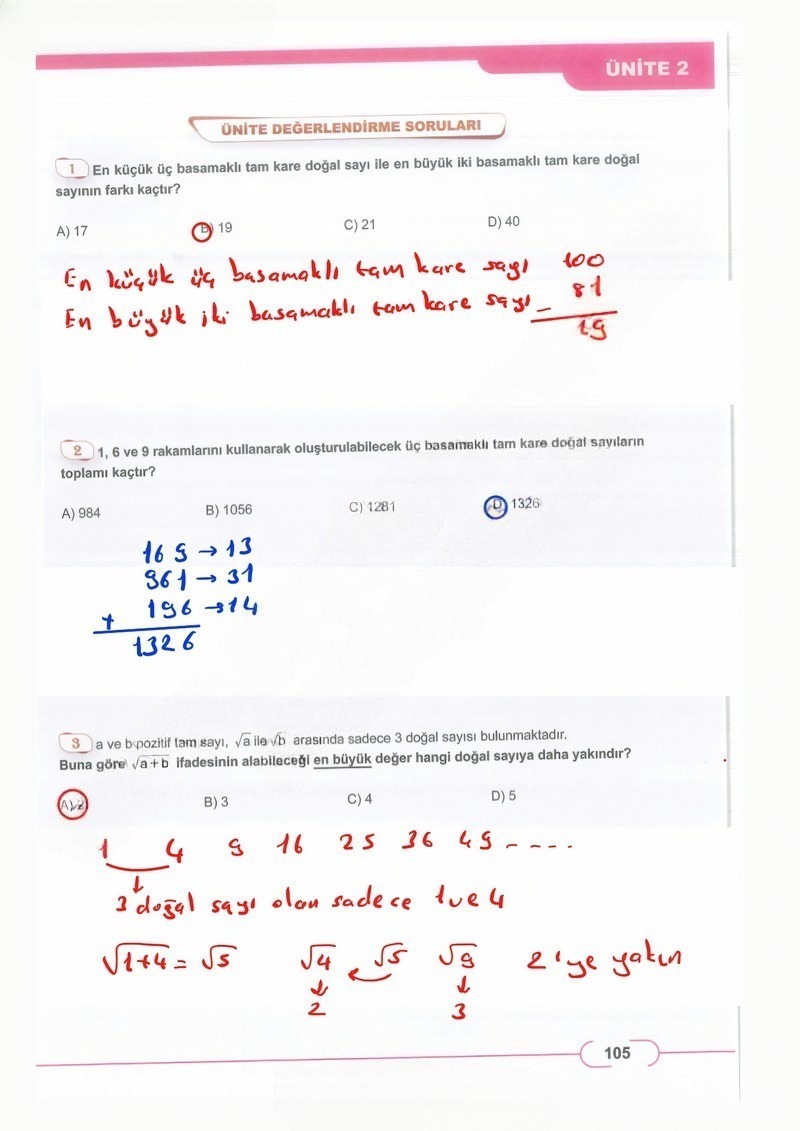 ÜNİTE 2
ÜNİTE DEĞERLENDİRME SORULARI
1 En küçük üç basamaklı tam kare doğal sayı ile en büyük iki basamaklı tam kare doğal
sayının farkı kaçtır?
A) 17 B) 19 C) 21 D) 40
En küçük üç basamaklı tam kare sayı 100
En büyük iki basamaklı tam kare sayı - 81
19
2 1, 6 ve 9 rakamlarını kullanarak oluşturulabilecek üç basamaklı tam kare doğal sayıların
toplamı kaçtır?
A) 984 B) 1056 C) 1281 D) 1326
169 → 13
961 → 31
+ 196 → 14
1326
3 a ve b pozitif tam sayı, √a ile √b arasında sadece 3 doğal sayısı bulunmaktadır.
Buna göre √a+b ifadesinin alabileceği en büyük değer hangi doğal sayıya daha yakındır?
A) 2 B) 3 C) 4 D) 5
1 4 9 16 25 36 49 - - - -
↓
3 doğal sayı olan sadece 1 ve 4
√1+4 = √5 √4 √5 √9 2'ye yakın
↓ ↓
2 3
105